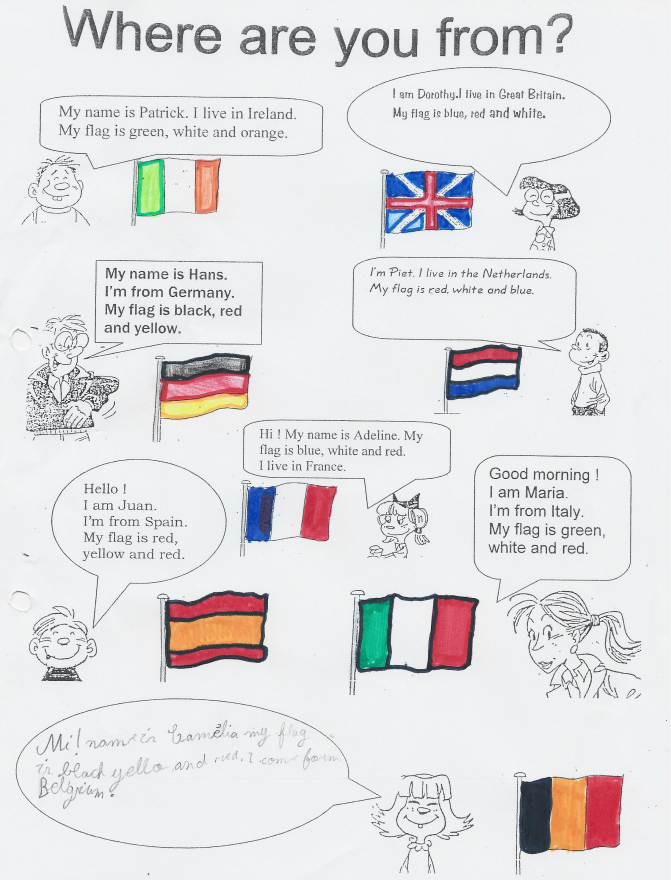 Where are you from?
My name is Patrick. I live in Ireland.
My flag is green, white and orange.
I am Dorothy.I live in Great Britain.
My flag is blue, red and white.
My name is Hans.
I'm from Germany.
My flag is black, red
and yellow.
I'm Piet. I live in the Netherlands.
My flag is red, white and blue.
Hi ! My name is Adeline. My
flag is blue, white and red.
I live in France.
Hello !
I am Juan.
I'm from Spain.
My flag is red,
yellow and red.
Good morning !
I am Maria.
I'm from Italy.
My flag is green,
white and red.
Mi! name is Camélia my flag
is black yello and red. I come from
Belgium.